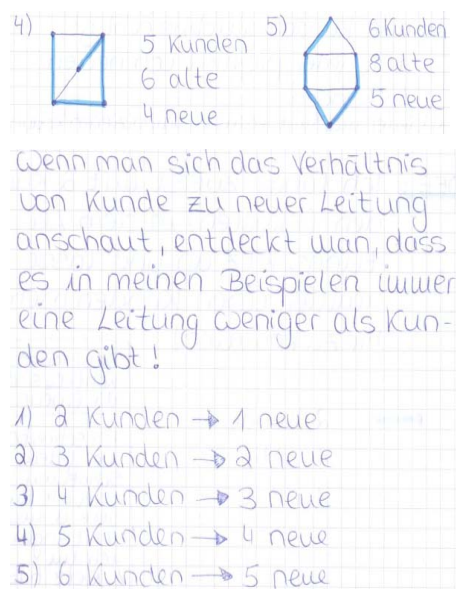 4) 5 Kunden
6 alte
4 neue
5) 6 Kunden
8 alte
5 neue
Wenn man sich das Verhältnis
von Kunde zu neuer Leitung
anschaut, entdeckt man, dass
es in meinen Beispielen immer
eine Leitung weniger als Kun-
den gibt!
1) 2 Kunden → 1 neue
2) 3 Kunden → 2 neue
3) 4 Kunden → 3 neue
4) 5 Kunden → 4 neue
5) 6 Kunden → 5 neue